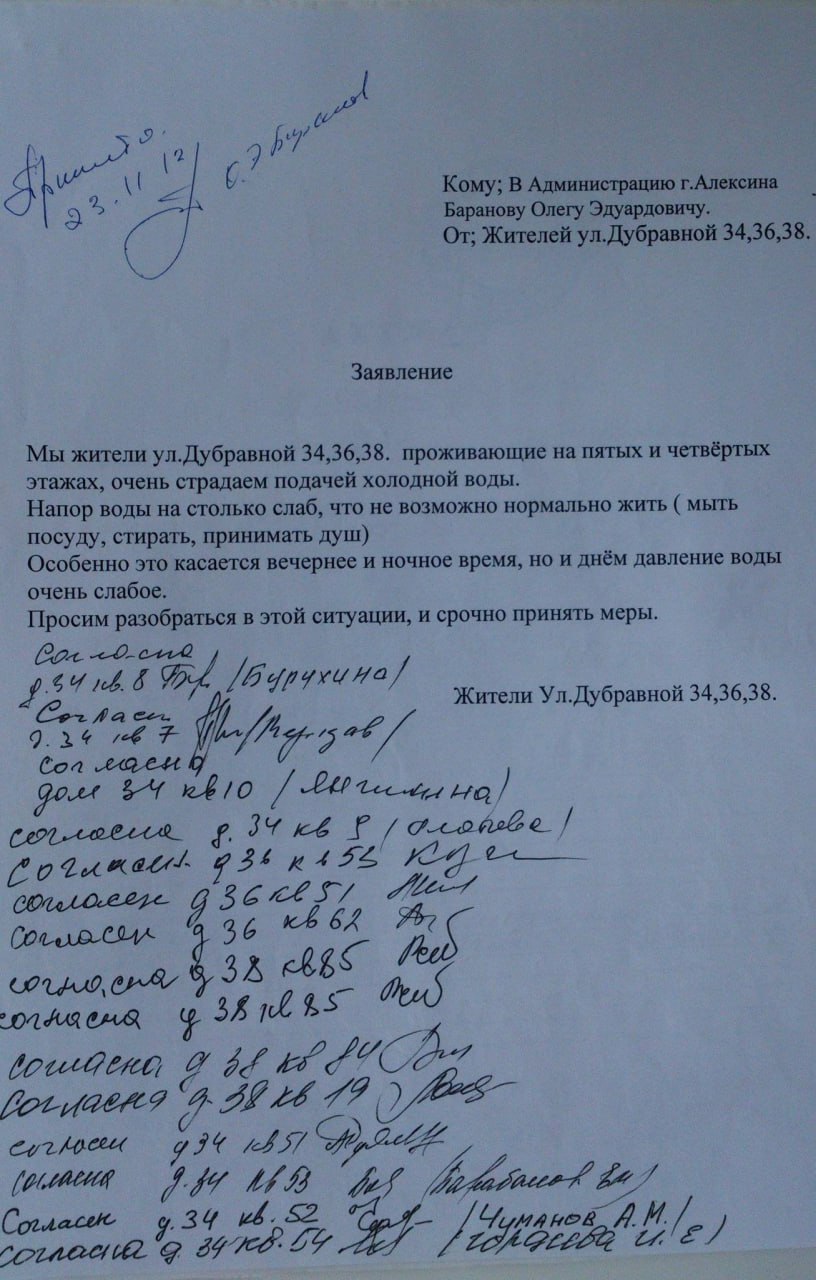 Принято.
23.11.12
О.Э Баранов
Кому; В Администрацию г.Алексина
Баранову Олегу Эдуардовичу.
От; Жителей ул.Дубравной 34,36,38.
Заявление
Мы жители ул.Дубравной 34,36,38. проживающие на пятых и четвёртых
этажах, очень страдаем подачей холодной воды.
Напор воды на столько слаб, что не возможно нормально жить ( мыть
посуду, стирать, принимать душ)
Особенно это касается вечернее и ночное время, но и днём давление воды
очень слабое.
Просим разобраться в этой ситуации, и срочно принять меры.
Согласна
д.34 кв. 8 /Бурухина/
Жители Ул.Дубравной 34,36,38.
Согласен
д. 34 кв 7
согласна
дом 34 кв 10 /
согласна д. 34 кв 9
Согласен д 36 кв 53
согласен д 36 кв 51
согласен д 36 кв 62
согласна д 38 кв 85
согласна д 38 кв 85
согласна д 38 кв 84
согласна д. 38 кв 19
согласен д 34 кв 51
согласна д. 34 кв 53
Согласен д. 34 кв. 52 /Чуманов А.М./
Согласна д. 34 кв. 54